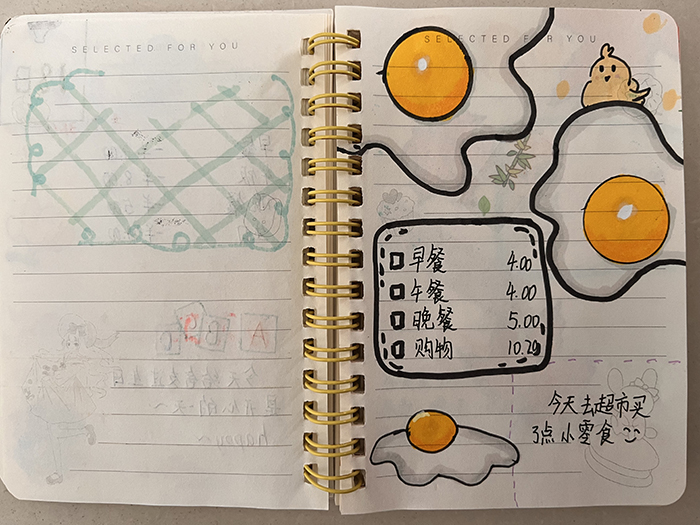 SELECTED FOR YOU
SELECTED FOR YOU
早餐 4.00
午餐 4.00
晚餐 5.00
购物 10.29
今天去超市买
了点小零食